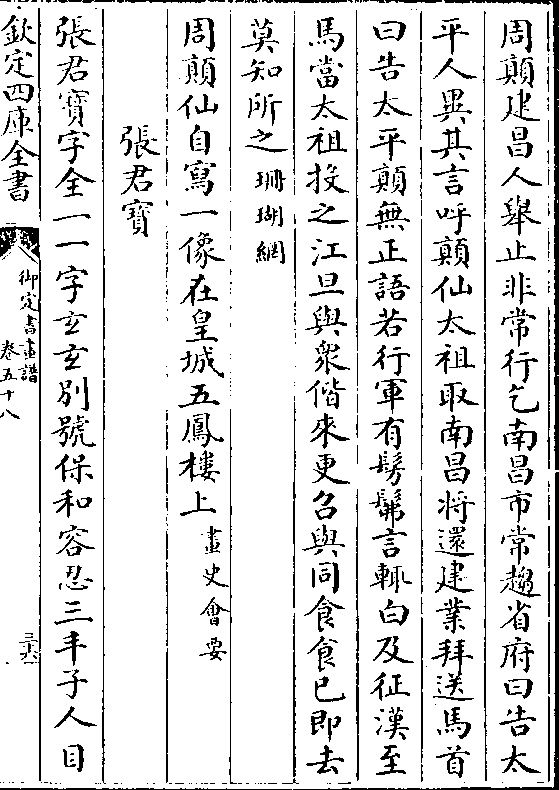 周顛建昌人舉止非常行乞南昌市常趨省府曰告太
平人異其言呼顛仙太祖取南昌将還建業拜送馬首
曰告太平顛無正語若行軍有髣髴言輒白及征漢至
馬當太祖投之江旦與衆偕來更召與同食食已即去
莫知所之珊瑚網
周顛仙自寫一像在皇城五鳳樓上畫史會要
張君寶
張君寶字全一一字玄玄別號保和容忍三丰子人目
欽定四庫全書
御定書畫譜
卷五十八
三六